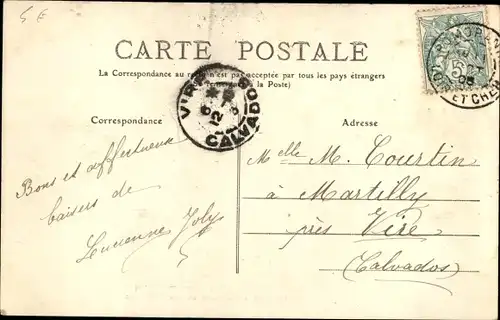 5€
CARTE POSTALE
(La Correspondance au recto n'est pas acceptée par tous les pays étrangers
à la Poste)
Correspondance
Adresse
VIRE
6
12
CALVADOS
5
ET CHER
Bons et affectueux
baisers de
Lucienne Joly
Melle M. Courtin
à Martilly
près Vire
(Calvados)